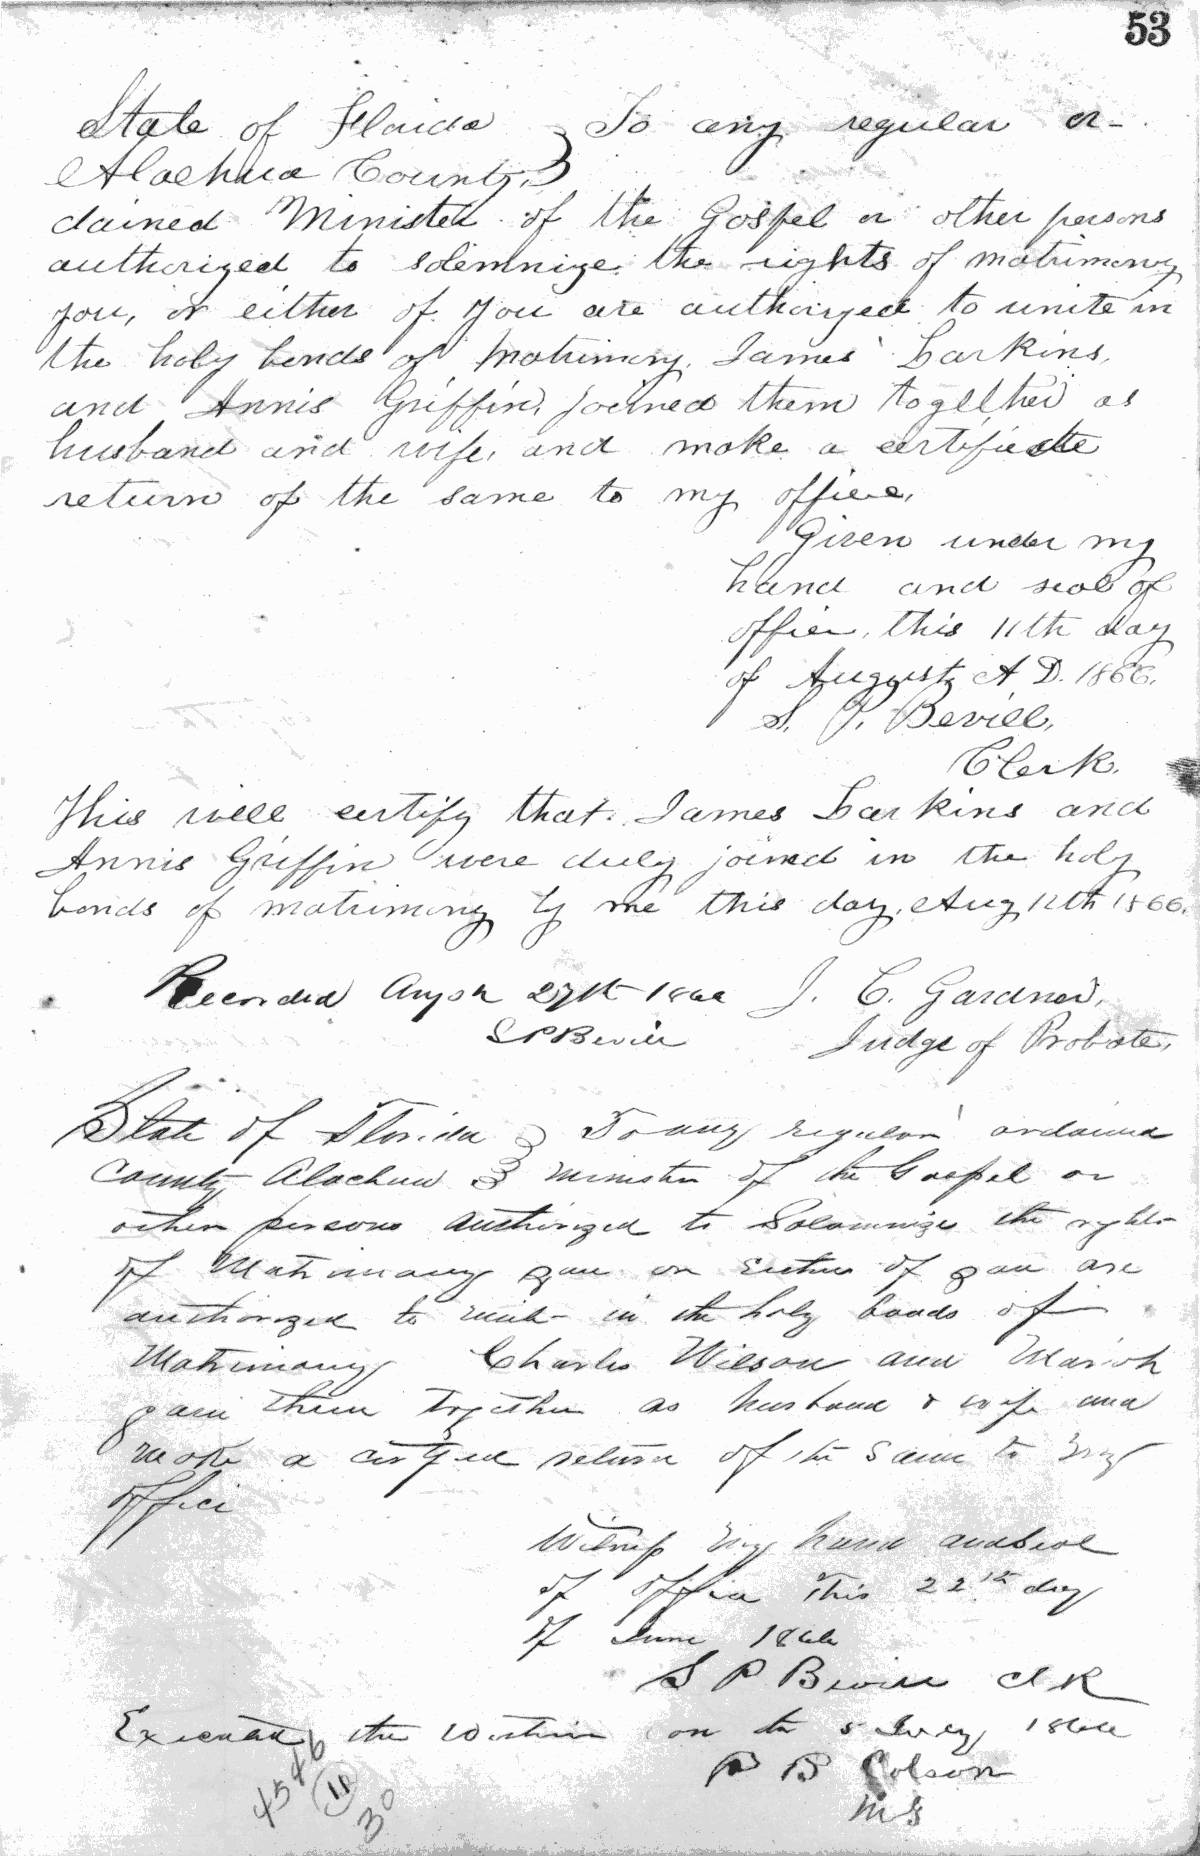 53
State of Florida } To any regular or-
Alachua County, }
dained Minister of the Gospel or other persons
authorized to solemnize the rights of matrimony
you, or either of you are authorized to unite in
the holy bonds of matrimony, James Larkins,
and Annis Griffin, joined them together as
husband and wife, and make a certificate
return of the same to my office,
Given under my
hand and seal of
office, this 11th day
of August A D. 1866.
S. P. Bevill,
Clerk.
This will certify that James Larkins and
Annis Griffin were duly joined in the holy
bonds of matrimony by me this day, Aug 12th 1866.
Recorded 27th 1866 J. C. Gardner,
S P Bevill Judge of Probate,
State of Florida } To any regular ordained
County Alachua } Minister of the Gospel or
other persons authorized to Solemnize the rights
of Matrimony you or either of you are
authorized to unite in the holy bonds of
Matrimony Charles Wilson and Mariah
join them together as husband & wife and
make a return of the same to my
office
Witness my hand and Seal
of office This 22th day
of June 1866
S P Bevill Clk
Executed the within on the 5 July 1866
P B Colson
M G
4546
11
30